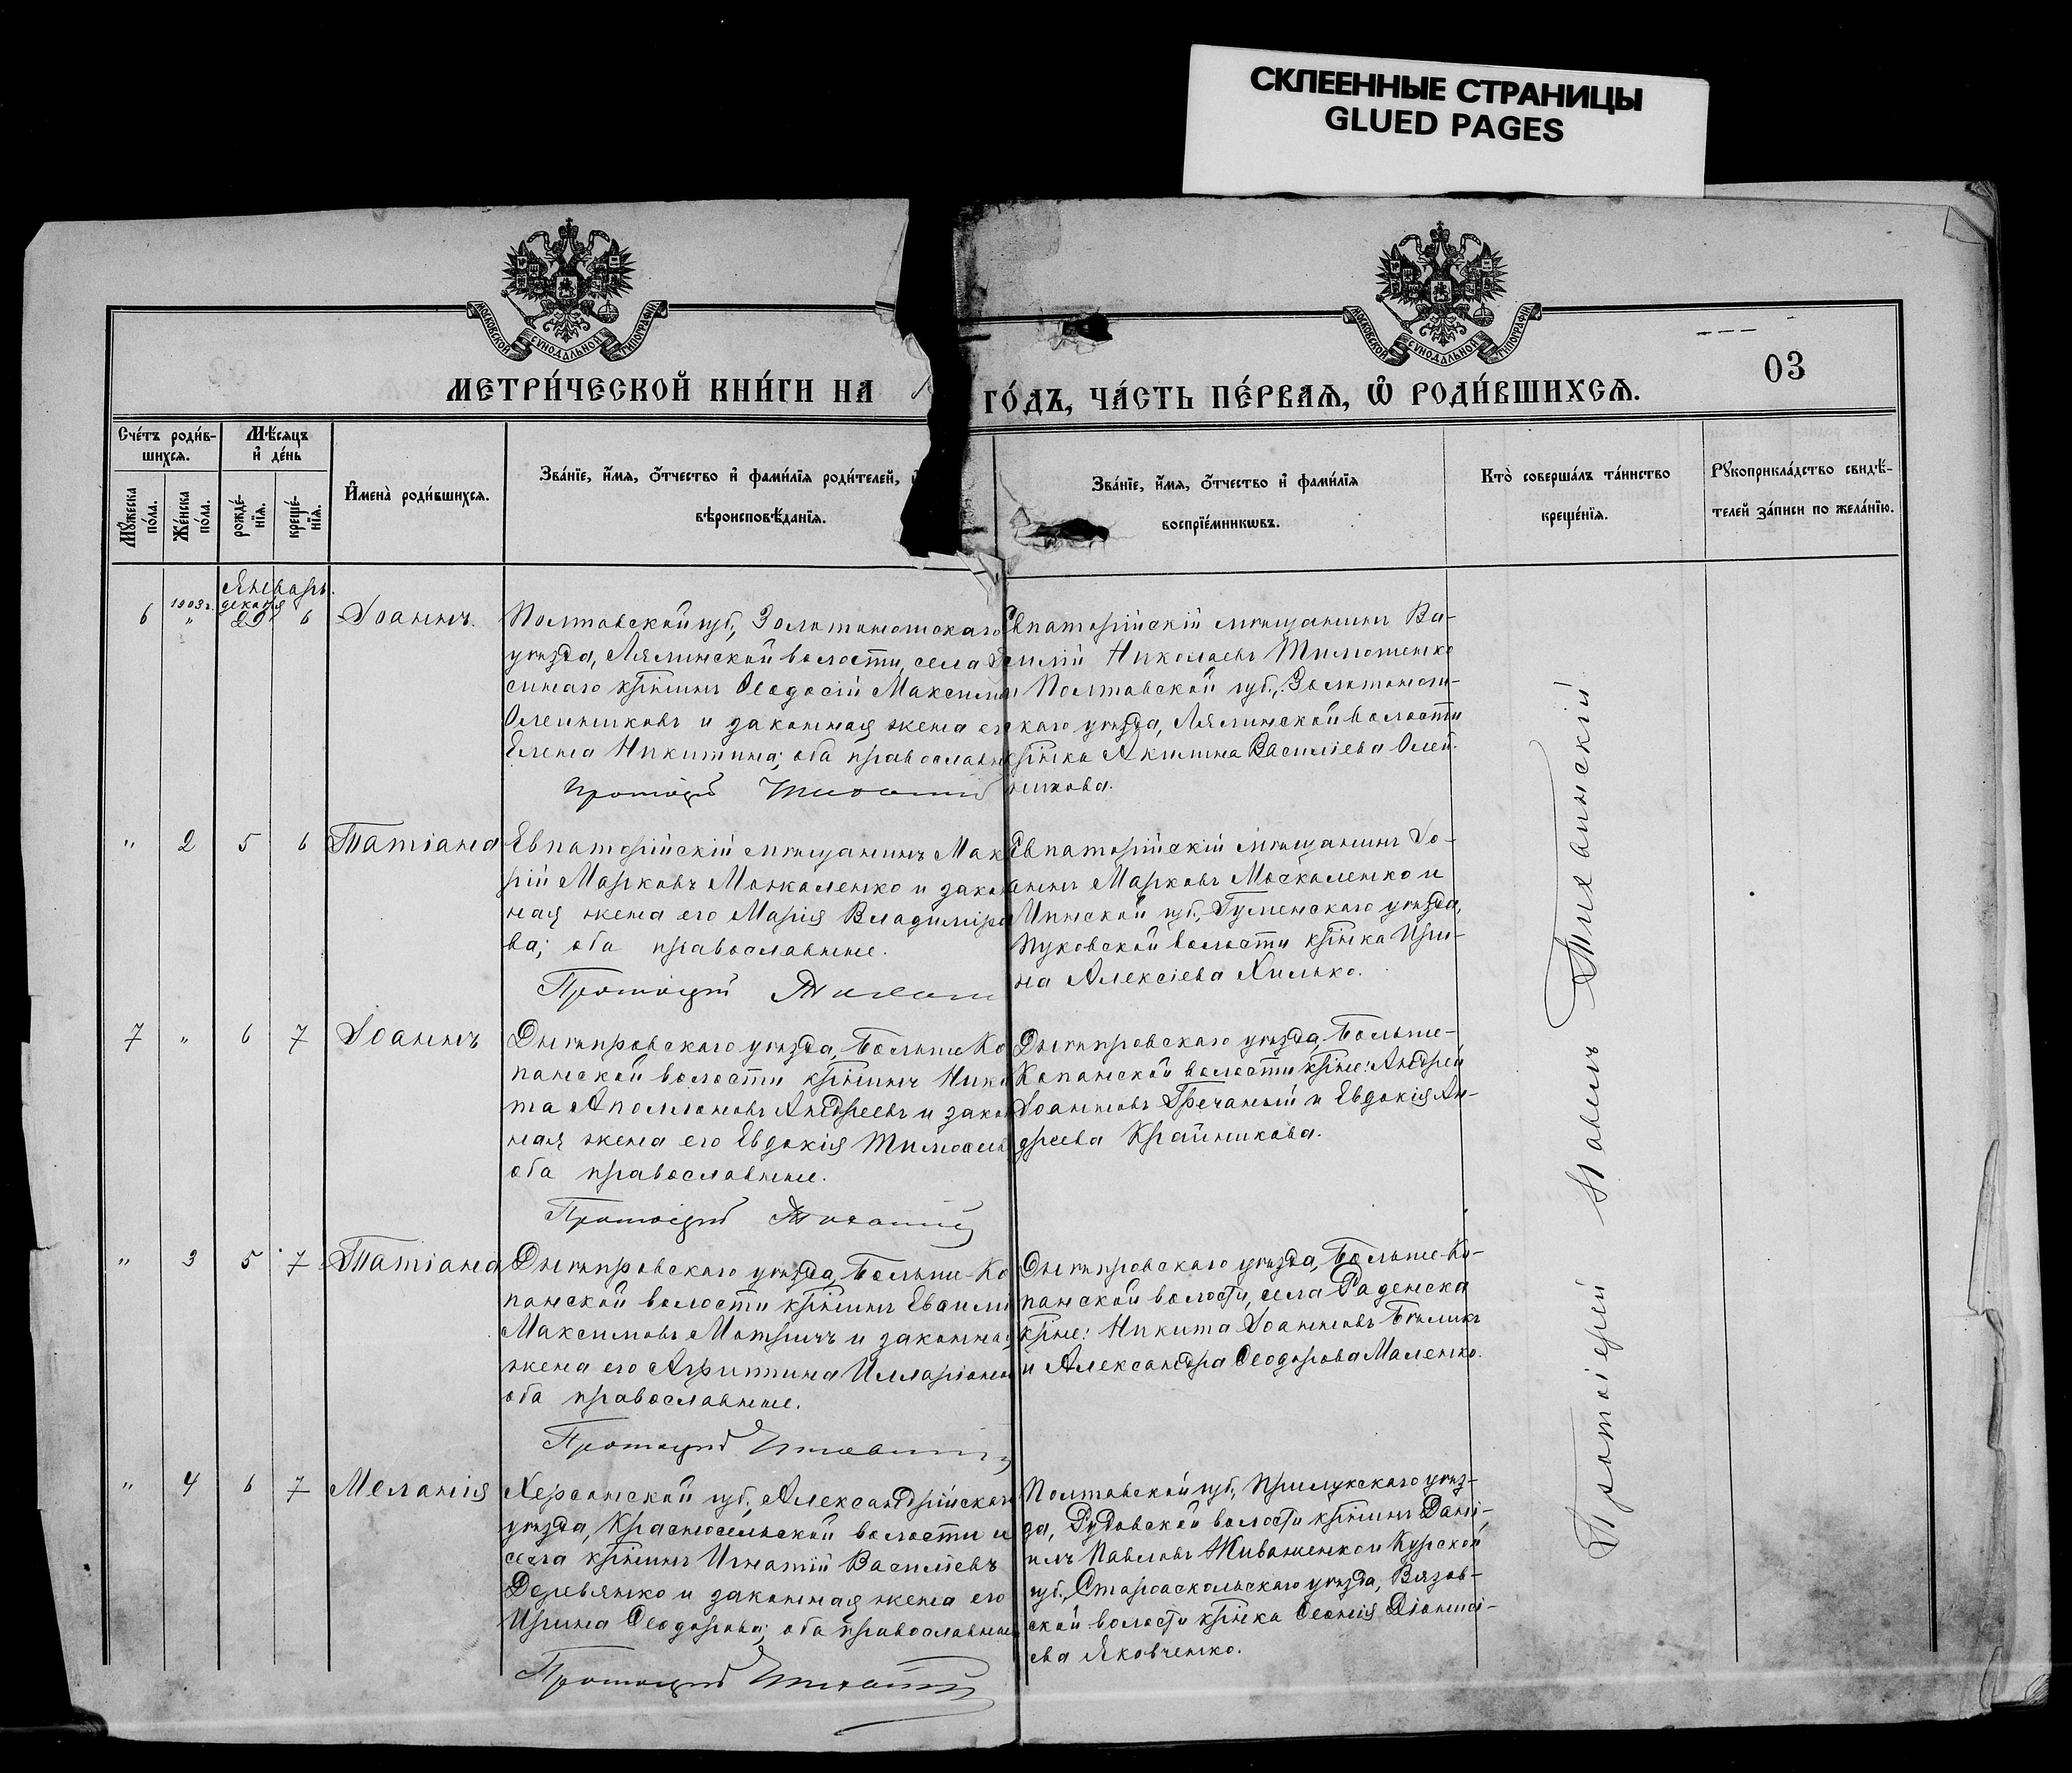 СКЛЕЕННЫЕ СТРАНИЦЫ
GLUED PAGES
МОСКОВСКОЙ СѴНОДАЛЬНОЙ ТИПОГРАФІИ
МОСКОВСКОЙ СѴНОДАЛЬНОЙ ТИПОГРАФІИ
03
МЕТРИ́ЧЕСКОЙ КНИ́ГИ НА
ГО́ДЪ, ЧА́СТЬ ПЕ́РВАѦ, Ѡ҆ РОДИ́ВШИХСѦ.
Сче́тъ роди́в-
шихсѧ.
Мѣ́сяцъ
и҆ де́нь
Мꙋ́жеска
по́ла.
Же́нска
по́ла.
рожде́-
нїѧ.
креще́-
нїѧ.
И҆мена̀ роди́вшихсѧ.
Зва́нїе, и҆́мѧ, ѻ҆́тчество и҆ фами́лїѧ роди́телей,
вѣроисповѣ́данїѧ.
Зва́нїе, и҆́мѧ, ѻ҆́тчество и҆ фами́лїѧ
воспрїе́мникѡвъ.
Кто̀ соверша́лъ та́инство
креще́нїѧ.
Рꙋкоприкла́дство свидѣ́-
телей за́писи по жела́нїю.
Январь.
1903 г. декабря
6 " 29 6 Іоаннъ.
Полтавской губ., Золотоношскаго
уѣзда, Лялинской волости, села
кр҃інинъ Ѳеодосій Максимо
Олейниковъ и законная жена ег
Елена Никитина; оба православн
Протоіерей Тихан
Евпаторійскій мѣщанинъ Ва-
силій Николаевъ Тимошенко
и Полтавской губ., Золотонош-
скаго уѣзда, Лялинской волости
кр҃інка Акилина Василіева Олей-
никова.
" 2 5 6 Татіана
Евпаторійскій мѣщанинъ Мак
рій Марковъ Москаленко и закон
ная жена его Марія Владиміро
ва; оба православные.
Протоіерей Тихан
Евпаторійскій мѣщанинъ Іо-
аннъ Марковъ Москаленко и
Минской губ., Игуменскаго уѣзда,
Пуковской волости кр҃інка Ири-
на Алексіева Хилько.
7 " 6 7 Іоаннъ
Днѣпровскаго уѣзда, Больше Ко
панской волости кр҃інинъ Ники
та Аполлоновъ Андреевъ и закон
ная жена его Евдокія Тимоѳеев
оба православные.
Протоіерей Тихан
Днѣпровскаго уѣзда, Больше-
Копанской волости кр҃іне: Андрей
Іоанновъ Гречаный и Евдокія Ан-
дреева Крайникова.
" 3 5 7 Татіана
Днѣпровскаго уѣзда, Больше-Ко
панской волости кр҃інинъ
Максимовъ и законная
жена его Агрипина Илларіонов
оба православные.
Протоіерей Тихан
Днѣпровскаго уѣзда, Больше-Ко-
панской волости, села Раденска
кр҃іне: Никита Іоанновъ Бѣликъ
и Александра Ѳеодорова Маленко.
" 4 6 7 Меланія
Херсонской губ., Александрійскаго
уѣзда, Красносельской волости и
села кр҃інинъ Игнатій Василіевъ
Деревянко и законная жена его
Ирина Ѳеодорова; оба православные
Протоіерей Тихан
Полтавской губ., Прилукскаго уѣз-
да, Рудовской волости кр҃інинъ Дані-
илъ Павловъ Живаненко и Курской
губ., Староскольскаго уѣзда, Вязов-
ской волости кр҃інка Ѳеонія Діонисі-
ева Яковченко.
Протоіерей Павелъ Тиханскій